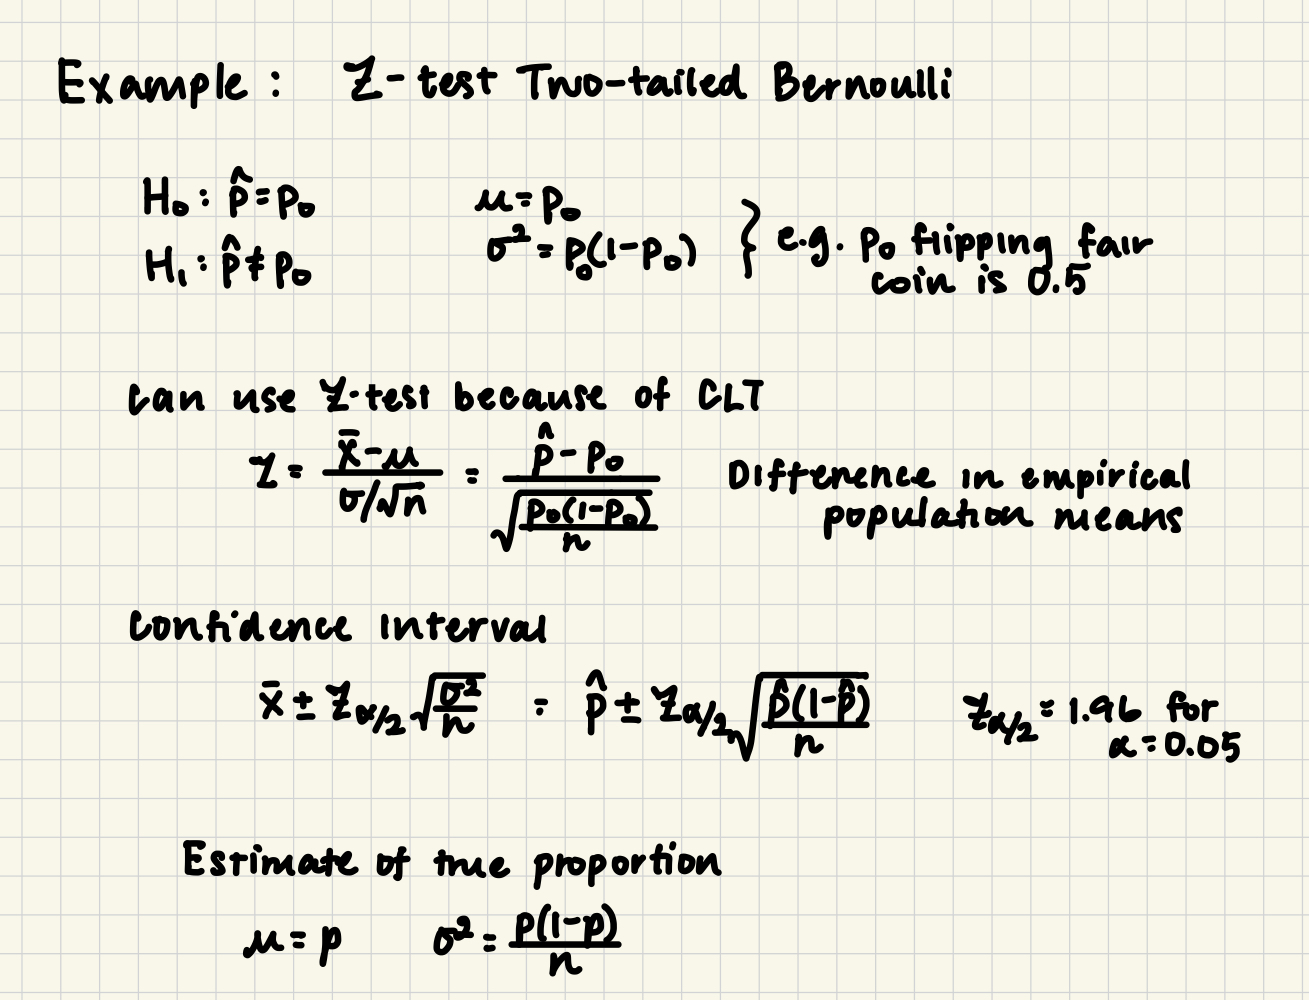 Example : Z-test Two-tailed Bernoulli
H₀ : p̂ = p₀
μ = p₀
H₁ : p̂ ≠ p₀
σ² = p₀(1-p₀)
} e.g. p₀ flipping fair
coin is 0.5
Can use Z-test because of CLT
Z = (x̄ - μ)/(σ/√n) = (p̂ - p₀)/√(p₀(1-p₀)/n)
Difference in empirical
population means
Confidence Interval
x̄ ± Z_α/2 √(σ²/n) = p̂ ± Z_α/2 √(p̂(1-p̂)/n)
Z_α/2 = 1.96 for
α = 0.05
Estimate of true proportion
μ = p σ² = p(1-p)/n